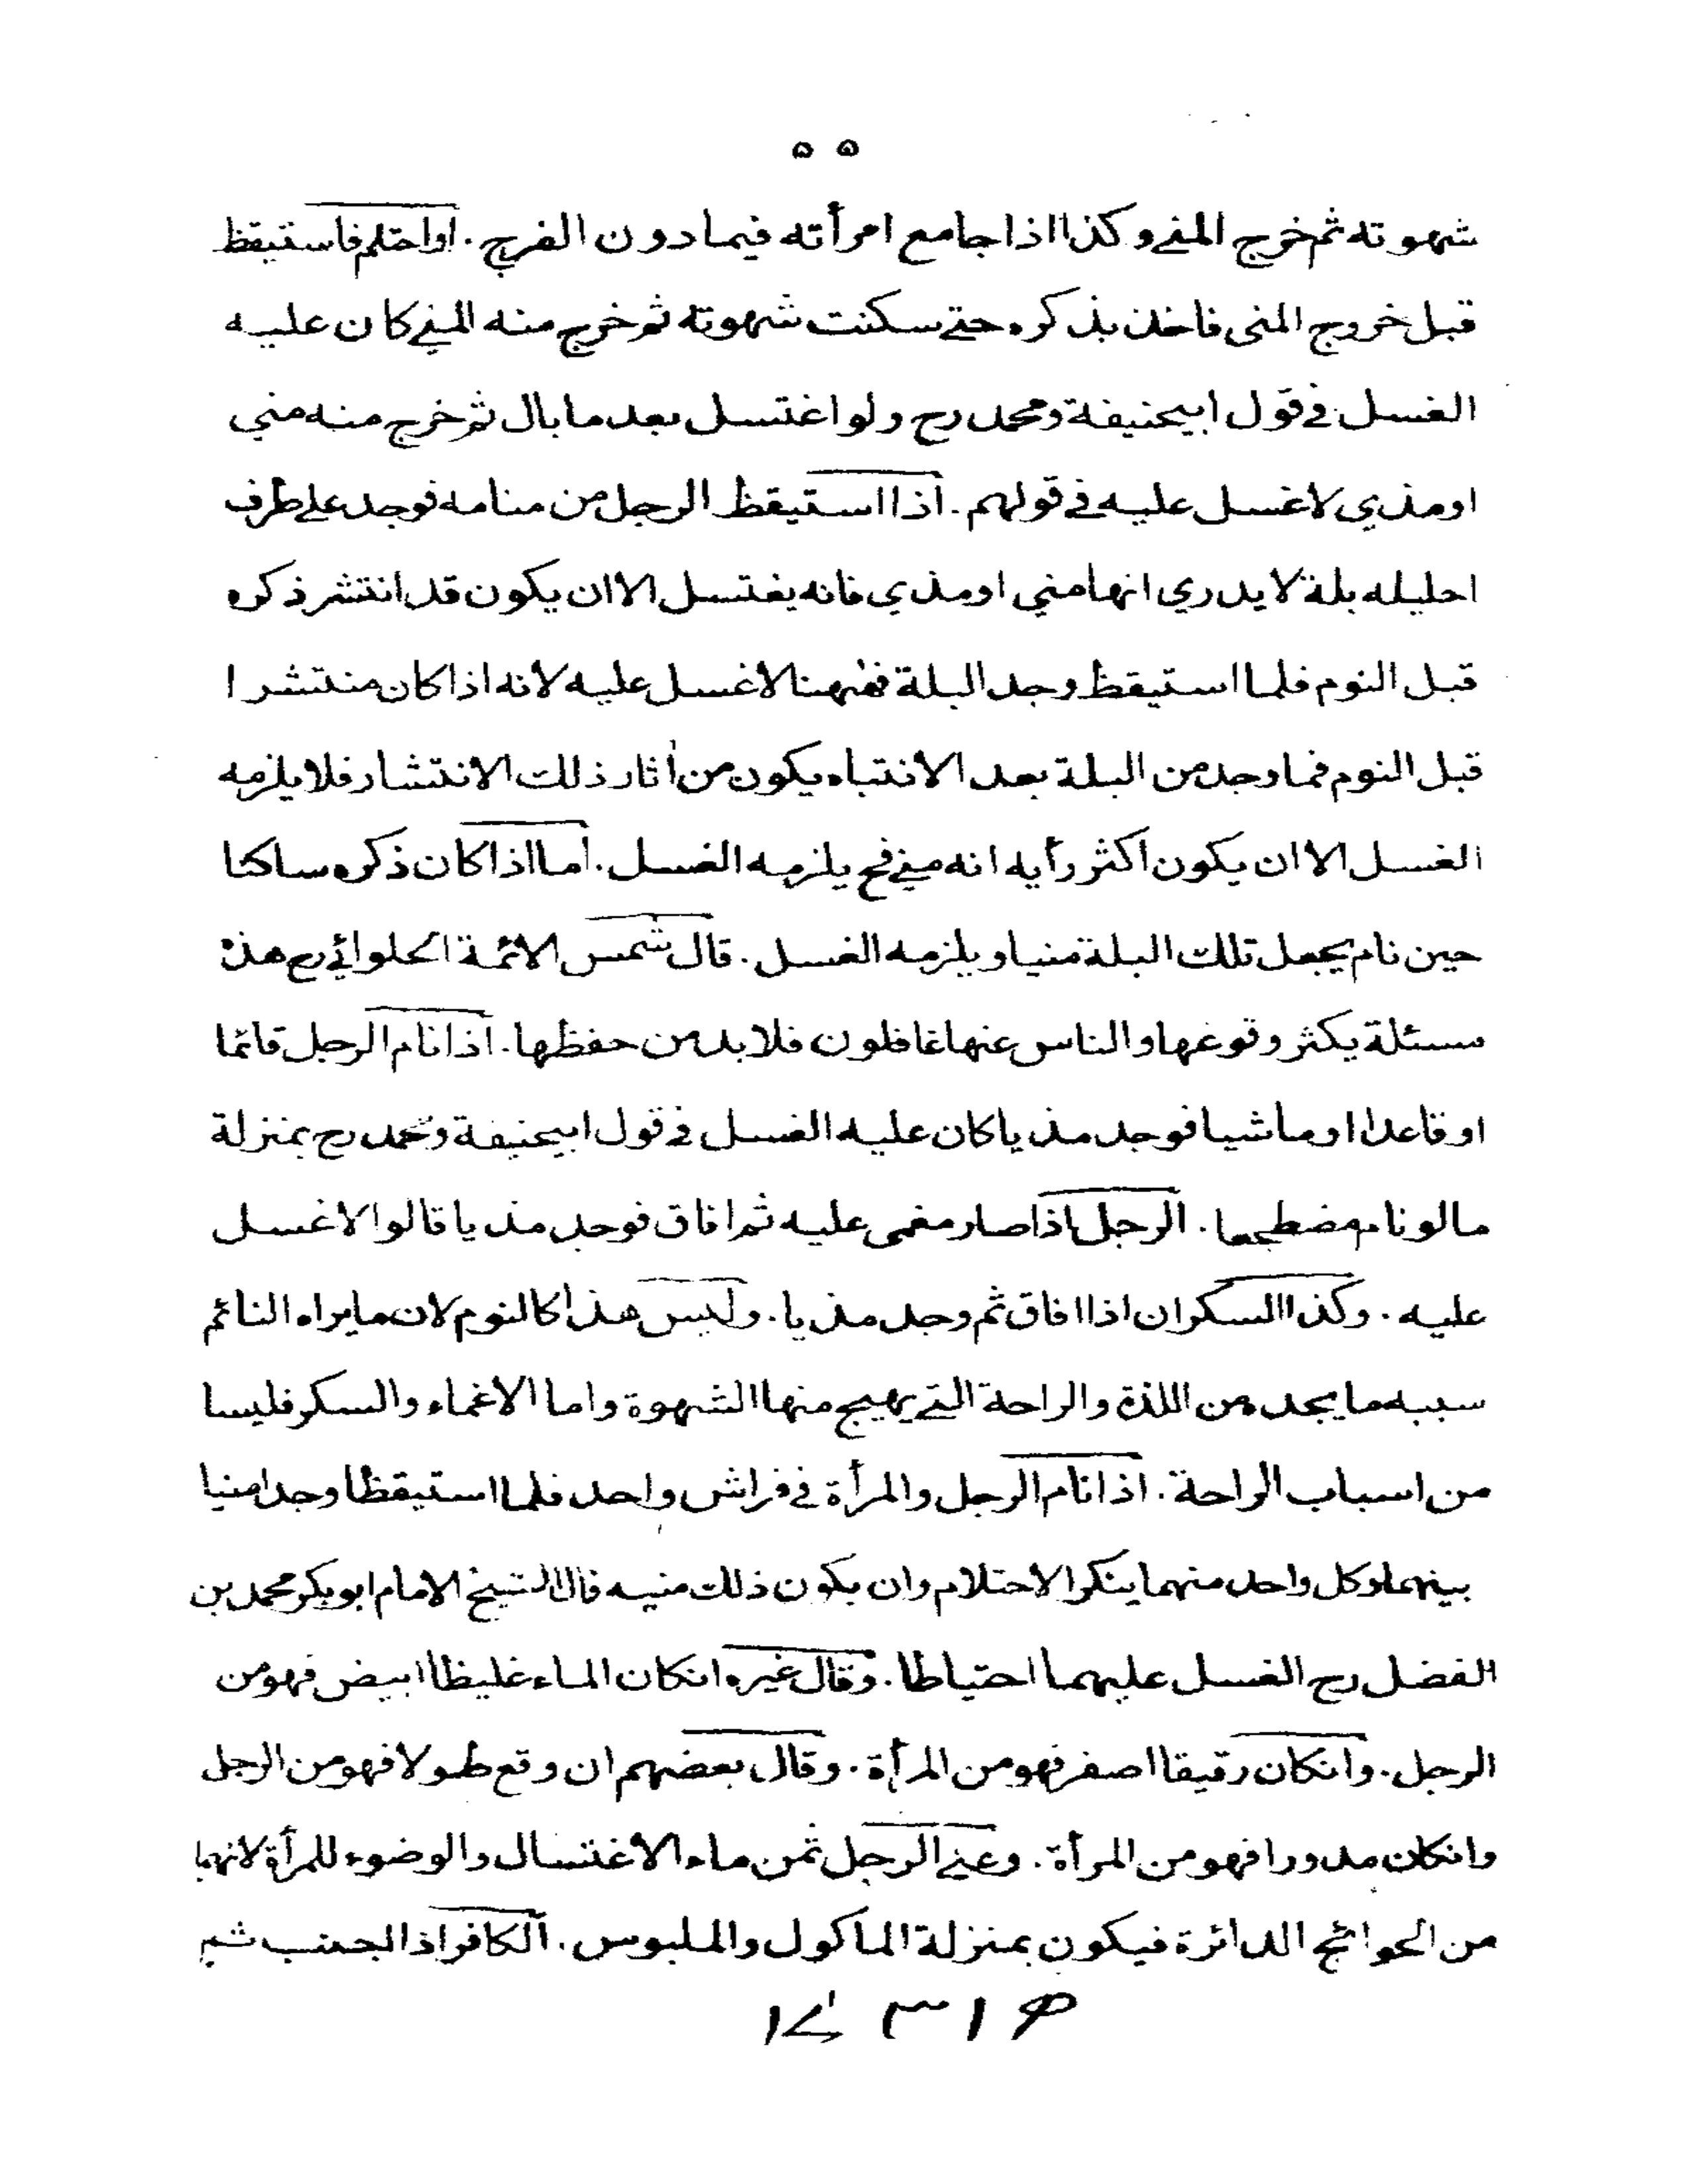 ٥٥
شهوته ثم خرج المني وكذا اذا جامع امرأته فيما دون الفرج . او احتلم فاستيقظ
قبل خروج المنى فاخذ بذكره حتى سكنت شهوته ثم خرج منه المني كان عليه
الغسل في قول ابيحنيفة ومحمد رح ولو اغتسل بعد ما بال ثم خرج منه مني
او مذي لا غسل عليه في قولهم . اذا استيقظ الرجل من منامه فوجد على طرف
احليله بلة لا يدري انها مني او مذي فانه يغتسل الا ان يكون قد انتشر ذكره
قبل النوم فلما استيقظ وجد البلة فههنا لا غسل عليه لانه اذا كان منتشرا
قبل النوم فما وجد من البلة بعد الانتباه يكون من أثار ذلك الانتشار فلا يلزمه
الغسل الا ان يكون اكثر رأيه انه مني فح يلزمه الغسل . اما اذا كان ذكره ساكنا
حين نام يجعل تلك البلة منيا ويلزمه الغسل . قال شمس الائمة الحلوائي رح هذه
مسئلة يكثر وقوعها والناس عنها غافلون فلا بد من حفظها . اذا نام الرجل قائما
او قاعدا او ماشيا فوجد مذيا كان عليه الغسل في قول ابيحنيفة ومحمد رح بمنزلة
ما لو نام مضطجعا . الرجل اذا صار مغمى عليه ثم افاق فوجد مذيا قالوا لا غسل
عليه . وكذا السكران اذا افاق ثم وجد مذيا . وليس هذا كالنوم لان ما يراه النائم
سببه ما يجد من اللذة والراحة التي يهيج منها الشهوة واما الاغماء والسكر فليسا
من اسباب الراحة . اذا نام الرجل والمرأة في فراش واحد فلما استيقظا وجدا منيا
بينهما وكل واحد منهما ينكر الاحتلام وان يكون ذلك منيه قال الشيخ الامام ابو بكر محمد بن
الفضل رح الغسل عليهما احتياطا . وقال غيره انكان الماء غليظا ابيض فهو من
الرجل . وانكان رقيقا اصفر فهو من المرأة . وقال بعضهم ان وقع طولا فهو من الرجل
وانكان مدورا فهو من المرأة . وعلى الرجل ثمن ماء الاغتسال والوضوء للمرأة لانهما
من الحوائج الدائرة فيكون بمنزلة الماكول والملبوس . الكافر اذا اجنب ثم